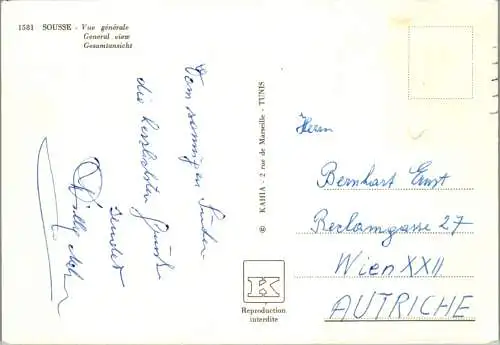 1581 SOUSSE - Vue générale
General view
Gesamtansicht
Vom sonnigen Süden
die herzlichsten Grüße
sendet
Willy
© KAHIA - 2 rue de Marseille - TUNIS
K
Reproduction
interdite
Herrn
Bernhart Ernst
Reclamgasse 27
Wien XXII
AUTRICHE